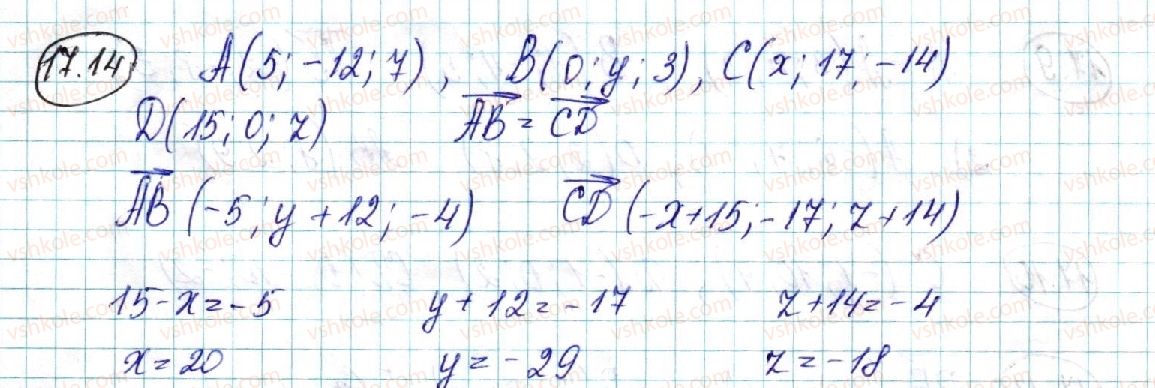 17.14 A(5; -12; 7), B(0; y; 3), C(x; 17; -14)
D(15; 0; z) AB = CD
AB (-5; y + 12; -4) CD (-x+15; -17; z+14)
15 - x = -5 y + 12 = -17 z + 14 = -4
x = 20 y = -29 z = -18